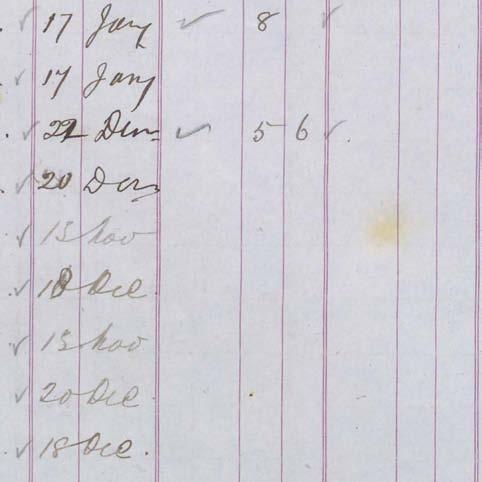 ✓ 17 Jany ✓ 8 ✓
✓ 17 Jany
✓ 22 Decr ✓ 5 6 ✓
✓ 20 Decr
✓ 15 Nov
✓ 18 Dec.
✓ 15 Nov
✓ 20 Dec
✓ 18 Dec.